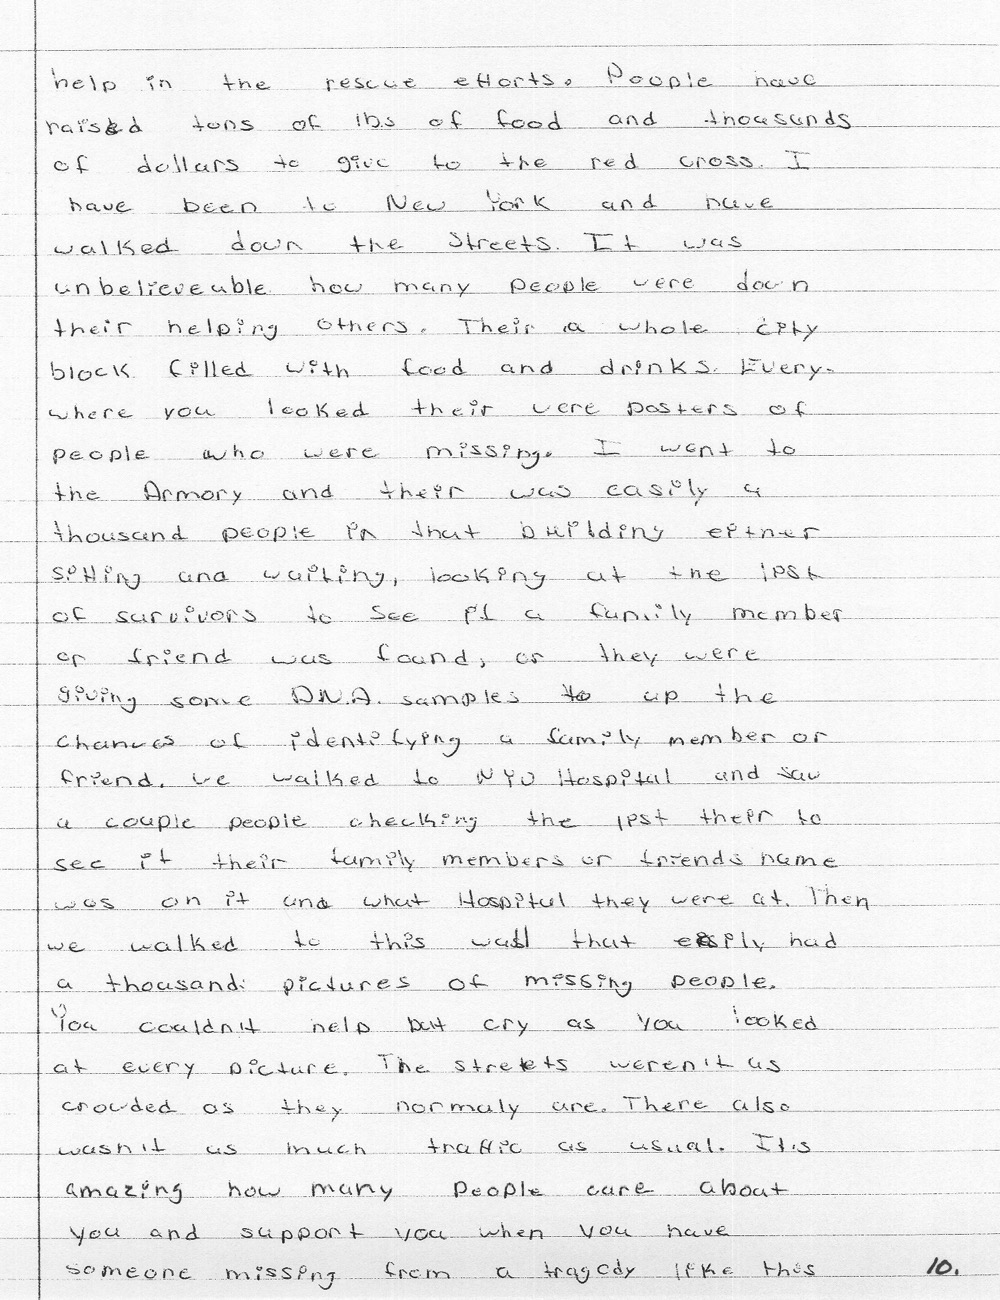 help in the rescue efforts. People have
raised tons of lbs of food and thousands
of dollars to give to the red cross. I
have been to New York and have
walked down the streets. It was
unbelieveable how many people were down
their helping others. Their a whole city
block filled with food and drinks. Every-
where you looked their were posters of
people who were missing. I went to
the Armory and their was easily a
thousand people in that building either
sitting and waiting, looking at the list
of survivors to see if a family member
or friend was found, or they were
giving some D.N.A. samples to up the
chances of identifying a family member or
friend. We walked to NYU Hospital and saw
a couple people checking the list their to
see if their family members or friends name
was on it and what Hospital they were at. Then
we walked to this wall that easily had
a thousand pictures of missing people.
You couldn't help but cry as you looked
at every picture. The streets weren't as
crowded as they normaly are. There also
wasn't as much traffic as usual. It's
amazing how many people care about
you and support you when you have
someone missing from a tragedy like this
10.